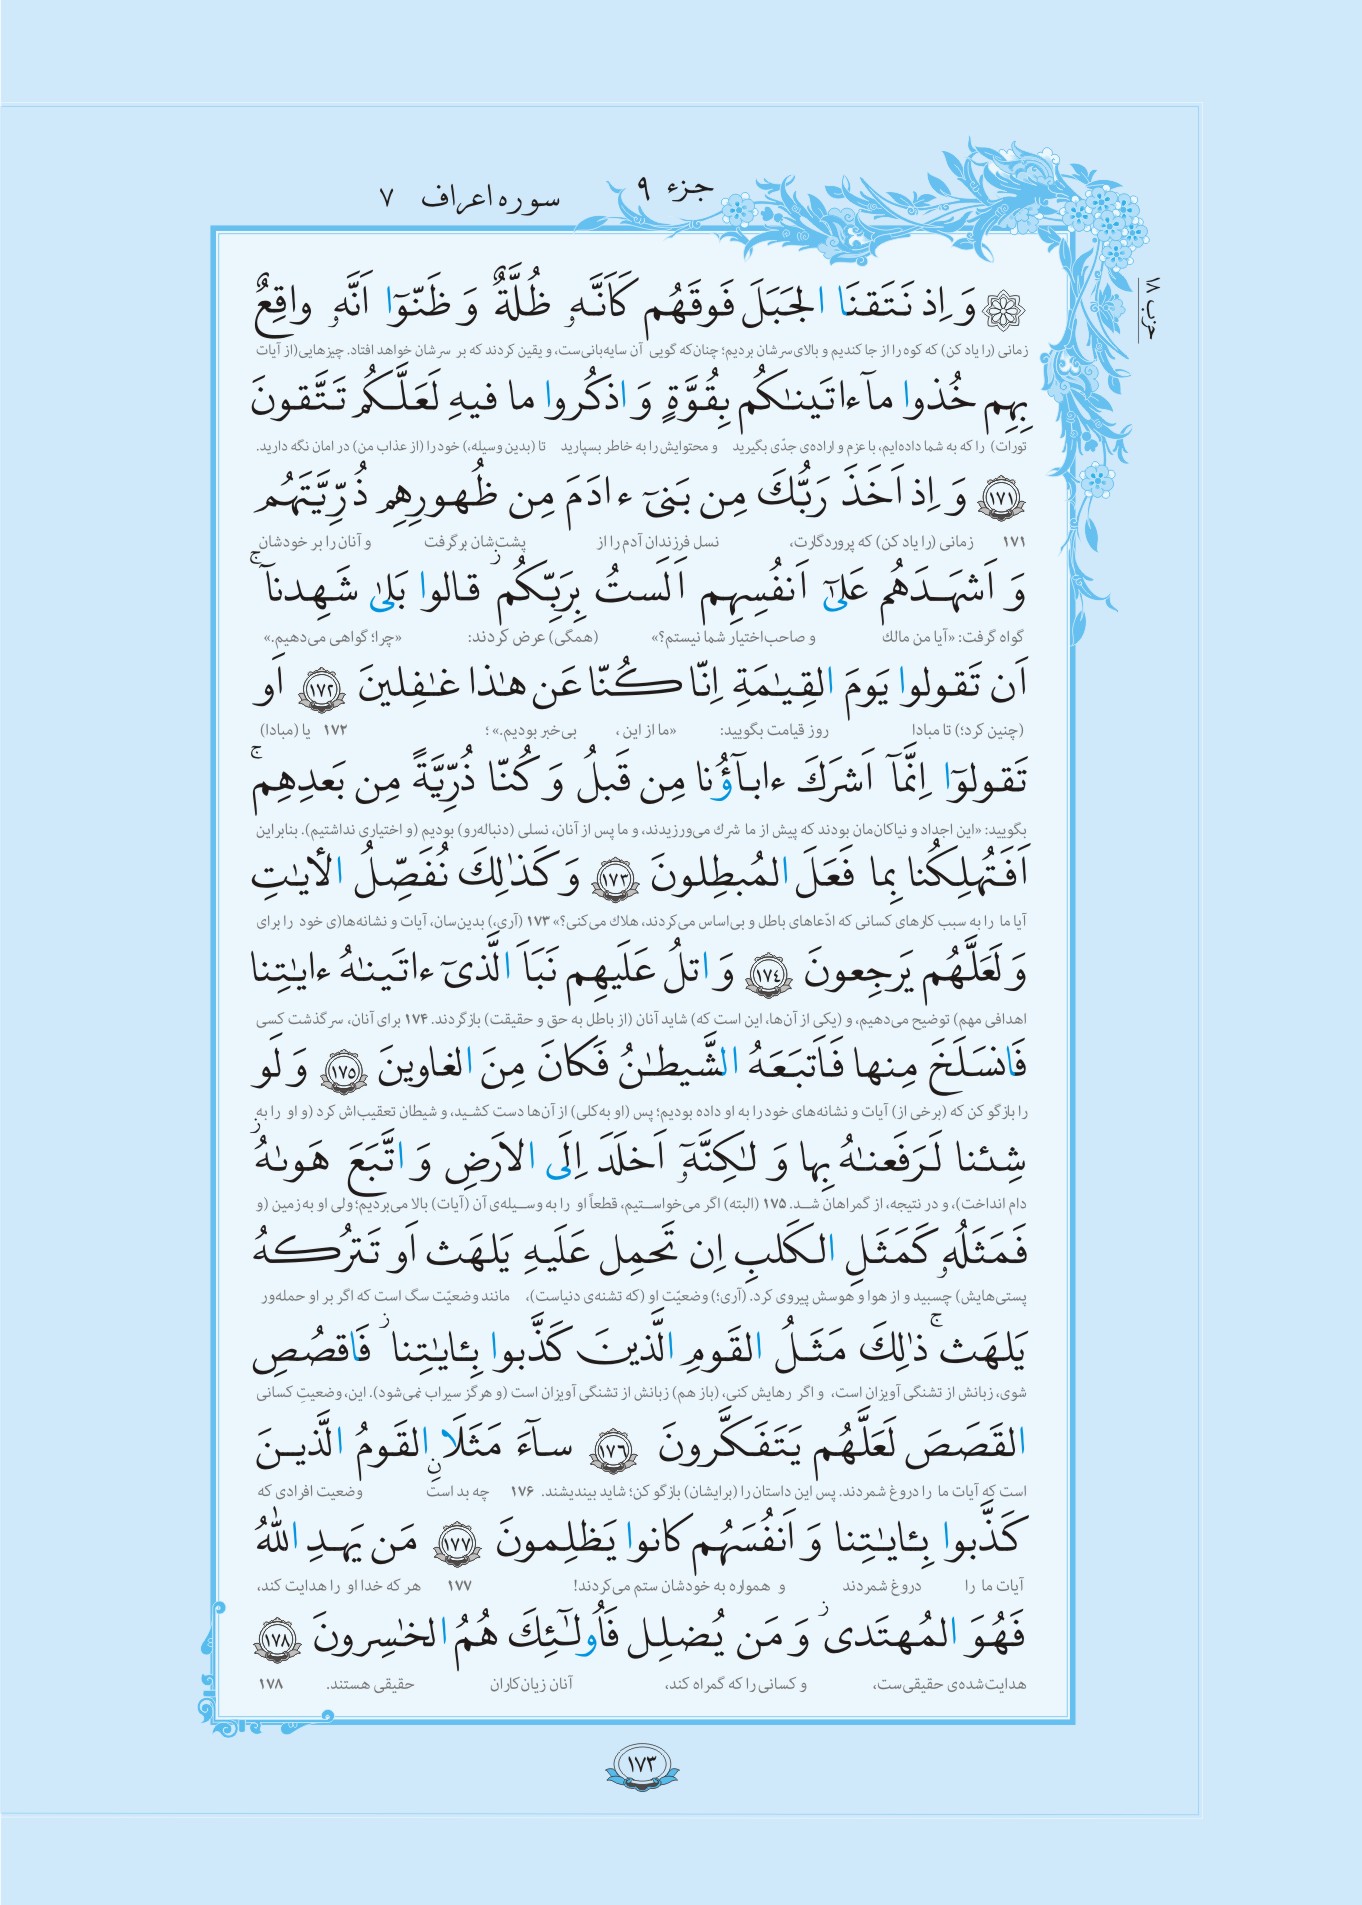 جزء ۹
سوره اعراف ۷
حزب ۱۸
وَ اِذ نَتَقنَا الجَبَلَ فَوقَهُم كَاَنَّهۥ ظُلَّةٌ وَ ظَنّوٓا اَنَّهۥ واقِعٌ
زمانی (را یاد کن) که کوه را از جا کندیم و بالای سرشان بردیم؛ چنان‌که گویی آن سایه‌بانی‌ست، و یقین کردند که بر سرشان خواهد افتاد. چیزهایی(از آیات
بِهِم خُذوا مآ ءاتَينٰكُم بِقُوَّةٍ وَ اذكُروا ما فيهِ لَعَلَّكُم تَتَّقونَ
تورات) را که به شما داده‌ایم، با عزم و اراده‌ی جدّی بگیرید و محتوایش را به خاطر بسپارید تا (بدین وسیله،) خود را (از عذاب من) در امان نگه دارید.
﴿١٧١﴾ وَ اِذ اَخَذَ رَبُّكَ مِن بَنىٓ ءادَمَ مِن ظُهورِهِم ذُرِّيَّتَهُم
۱۷۱ زمانی (را یاد کن) که پروردگارت، نسل فرزندان آدم را از پشت‌شان برگرفت و آنان را بر خودشان
وَ اَشهَدَهُم عَلىٰٓ اَنفُسِهِم اَلَستُ بِرَبِّكُم ز قالوا بَلىٰ شَهِدنآ ج
گواه گرفت: «آیا من مالك و صاحب‌اختیار شما نیستم؟» (همگی) عرض کردند: «چرا؛ گواهی می‌دهیم.»
اَن تَقولوا يَومَ القِيٰمَةِ اِنّا كُنّا عَن هٰذا غٰفِلينَ ﴿١٧٢﴾ اَو
(چنین کرد؛) تا مبادا روز قیامت بگویید: «ما از این ، بی‌خبر بودیم.» ؛ ۱۷۲ یا (مبادا)
تَقولوٓا اِنَّمآ اَشرَكَ ءابآؤُنا مِن قَبلُ وَ كُنّا ذُرِّيَّةً مِن بَعدِهِم ج
بگویید: «این اجداد و نیاکان‌مان بودند که پیش از ما شرك می‌ورزیدند، و ما پس از آنان، نسلی (دنباله‌رو) بودیم (و اختیاری نداشتیم). بنابراین
اَفَتُهلِكُنا بِما فَعَلَ المُبطِلونَ ﴿١٧٣﴾ وَ كَذٰلِكَ نُفَصِّلُ الأيٰتِ
آیا ما را به سبب کارهای کسانی که ادّعاهای باطل و بی‌اساس می‌کردند، هلاك می‌کنی؟» ۱۷۳ (آری،) بدین‌سان، آیات و نشانه‌ها(ی خود را برای
وَ لَعَلَّهُم يَرجِعونَ ﴿١٧٤﴾ وَ اتلُ عَلَيهِم نَبَاَ الَّذىٓ ءاتَينٰهُ ءايٰتِنا
اهدافی مهم) توضیح می‌دهیم، و (یکی از آن‌ها، این است که) شاید آنان (از باطل به حق و حقیقت) بازگردند. ۱۷۴ برای آنان، سرگذشت کسی
فَانسَلَخَ مِنها فَاَتبَعَهُ الشَّيطٰنُ فَكانَ مِنَ الغاوينَ ﴿١٧٥﴾ وَ لَو
را بازگو کن که (برخی از) آیات و نشانه‌های خود را به او داده بودیم؛ پس (او به‌کلی) از آن‌ها دست کشید، و شیطان تعقیب‌اش کرد (و او را به
شِئنا لَرَفَعنٰهُ بِها وَ لٰكِنَّهۥٓ اَخلَدَ اِلَى الاَرضِ وَ اتَّبَعَ هَوىٰهُ ز
دام انداخت)، و در نتیجه، از گمراهان شـد. ۱۷۵ (البته) اگر می‌خواستیم، قطعاً او را به وسیله‌ی آن (آیات) بالا می‌بردیم؛ ولی او به زمین (و
فَمَثَلُهۥ كَمَثَلِ الكَلبِ اِن تَحمِل عَلَيهِ يَلهَث اَو تَترُكهُ
پستی‌هایش) چسبید و از هوا و هوسش پیروی کرد. (آری؛) وضعیّت او (که تشنه‌ی دنیاست)، مانند وضعیّت سگ است که اگر بر او حمله‌ور
يَلهَث ج ذٰلِكَ مَثَلُ القَومِ الَّذينَ كَذَّبوا بِـٔايٰتِنا ز فَاقصُصِ
شوی، زبانش از تشنگی آویزان است، و اگر رهایش کنی، (باز هم) زبانش از تشنگی آویزان است (و هرگز سیراب نمی‌شود). این، وضعیتِ کسانی
القَصَصَ لَعَلَّهُم يَتَفَكَّرونَ ﴿١٧٦﴾ سآءَ مَثَلًا نِ القَومُ الَّذينَ
است که آیات ما را دروغ شمردند. پس این داستان را (برایشان) بازگو کن؛ شاید بیندیشند. ۱۷۶ چه بد است وضعیت افرادی که
كَذَّبوا بِـٔايٰتِنا وَ اَنفُسَهُم كانوا يَظلِمونَ ﴿١٧٧﴾ مَن يَهدِ اللّٰهُ
آیات ما را دروغ شمردند و همواره به خودشان ستم می‌کردند! ۱۷۷ هر که خدا او را هدایت کند،
فَهُوَ المُهتَدى ز وَ مَن يُضلِل فَاُولٰٓئِكَ هُمُ الخٰسِرونَ ﴿١٧٨﴾
هدایت‌شده‌ی حقیقی‌ست، و کسانی را که گمراه کند، آنان زیان‌کاران حقیقی هستند. ۱۷۸
۱۷۳